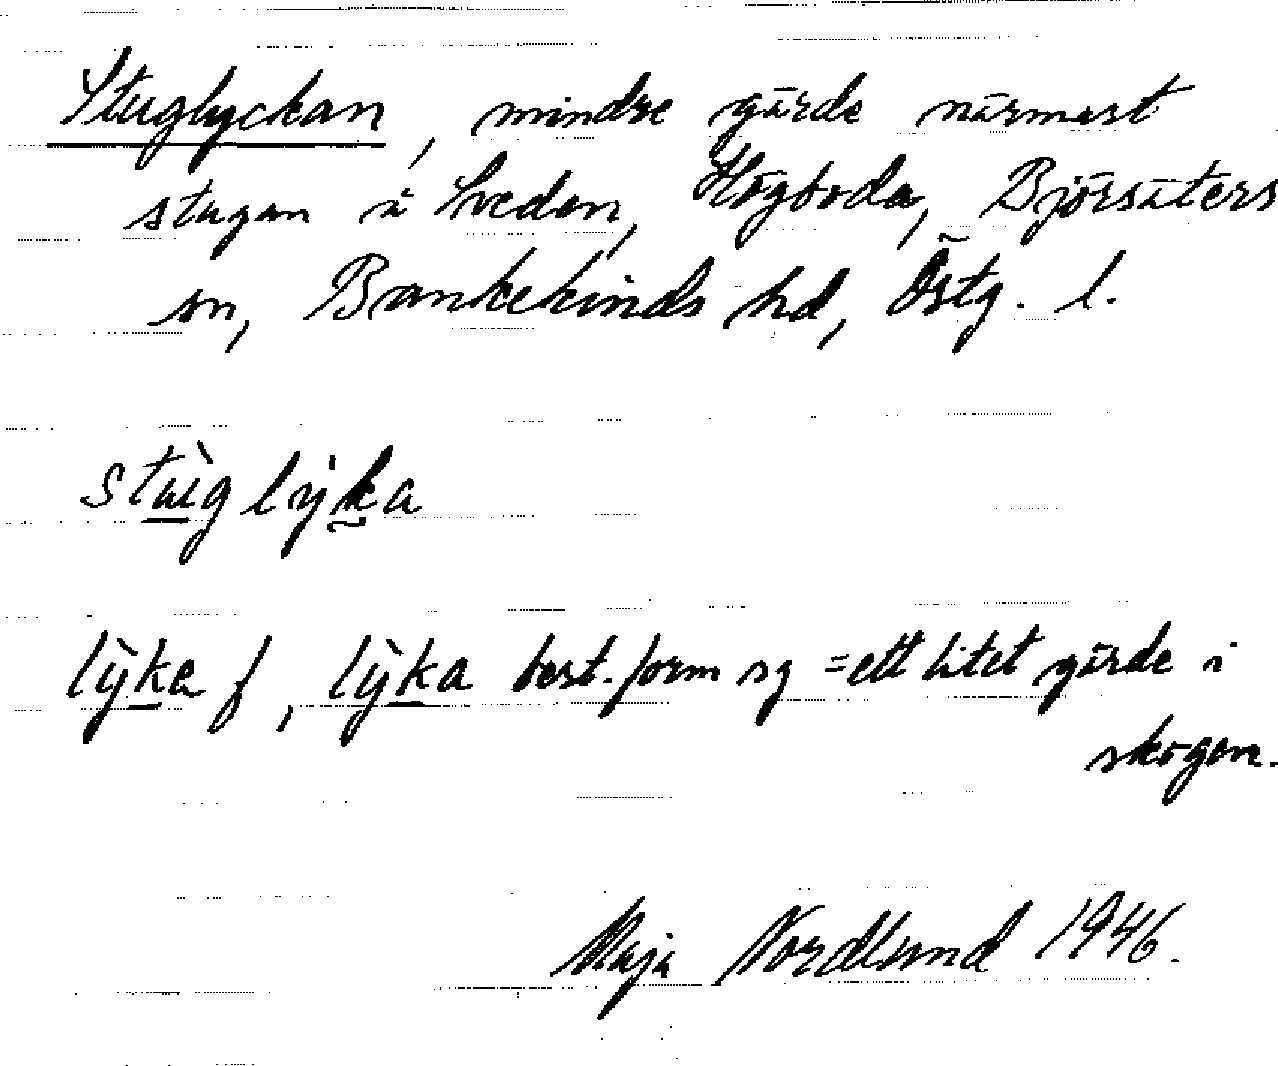 Stuglyckan, mindre gärde närmast
stugan å Sveden, Högboda, Björsäters
sn, Bankekinds hd, Östg. l.
stùglỳka
lỳka f, lỳka best. form sg = ett litet gärde i
skogen.
Maja Nordlund 1946.